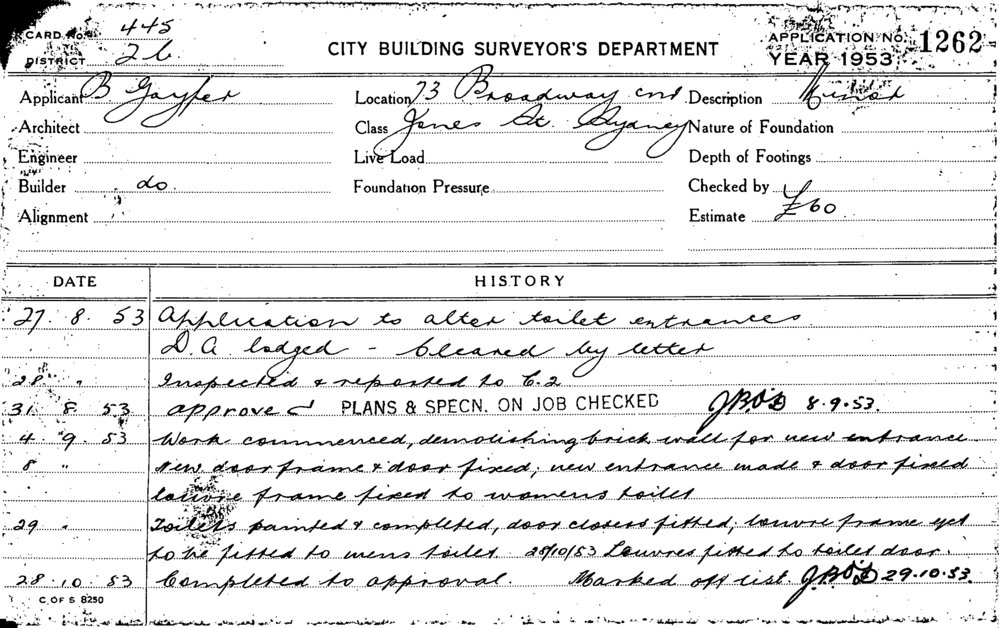 CARD No. 445
DISTRICT 26
CITY BUILDING SURVEYOR'S DEPARTMENT
APPLICATION No. 1262
YEAR 1953
Applicant B Gayfer
Location 73 Broadway cnr
Description Minor
Architect
Class Jones St. Sydney
Nature of Foundation
Engineer
Live Load
Depth of Footings
Builder do.
Foundation Pressure
Checked by
Alignment
Estimate £60
DATE HISTORY
27. 8. 53 Application to alter toilet entrances
D.A lodged - Cleared by letter
28 " Inspected & reported to C.2
31. 8. 53 approved PLANS & SPECN. ON JOB CHECKED 8.9.53.
4. 9. 53 Work commenced, demolishing brick wall for new entrance
8 " New door frame & door fixed, new entrance made & door fixed
louvre frame fixed to womens toilet
29 " Toilets painted & completed, door closers fitted, louvre frame yet
to be fitted to mens toilet 28/10/53 Louvres fitted to toilet door.
28. 10. 53 Completed to approval. Marked off list. 29.10.53.
C. OF S 8250